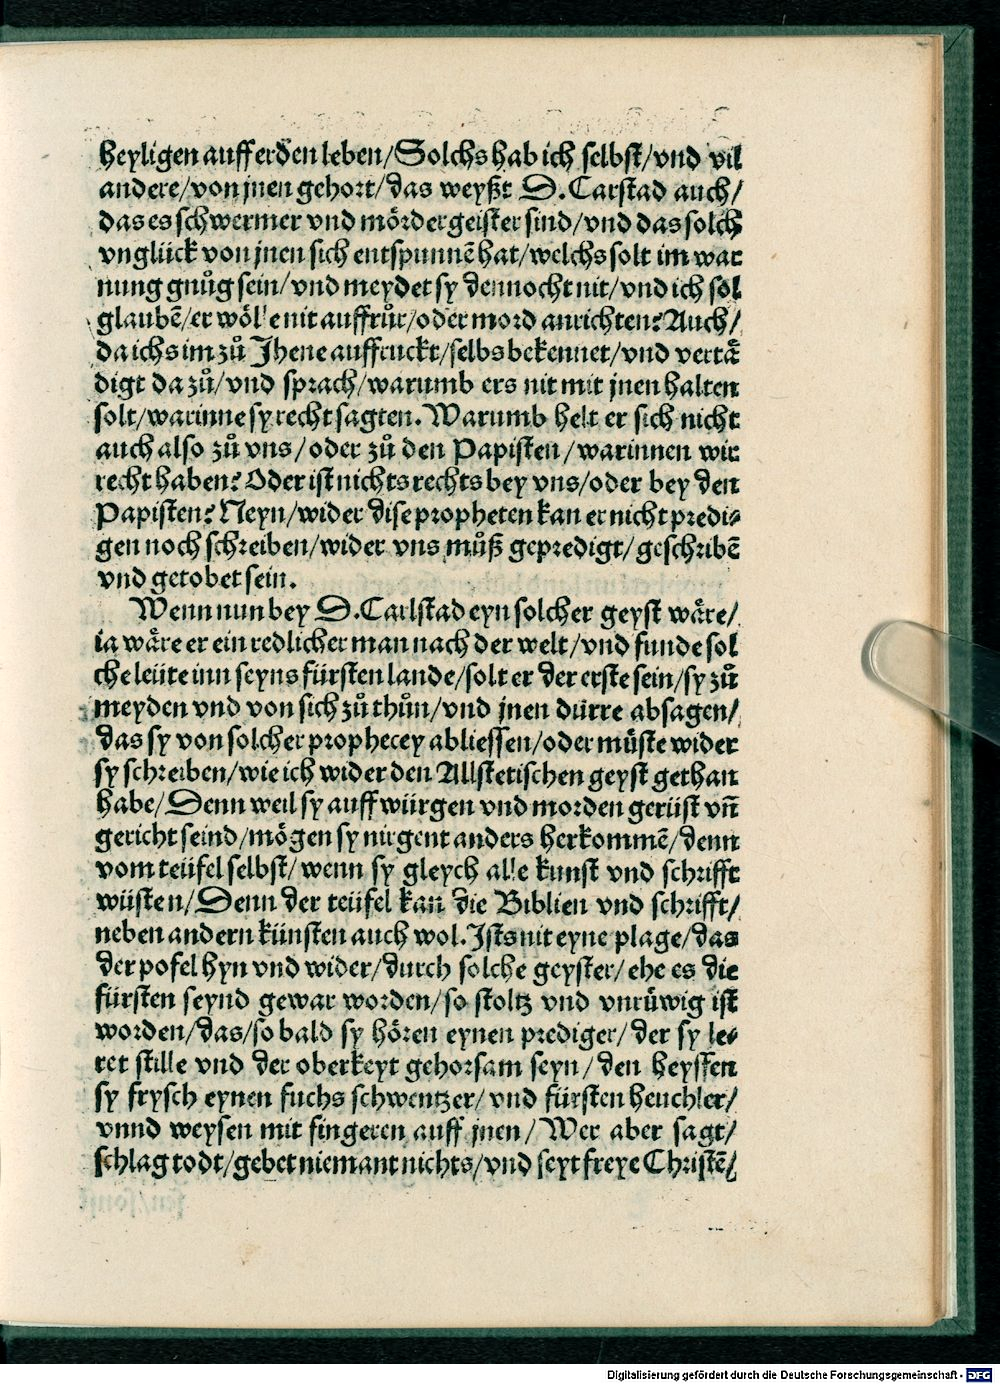 heyligen auff erden leben/Solchs hab ich selbst/vnd vil
andere/von jnen gehort/das weyßt D.Carstad auch/
das es schwermer vnd mördergeister sind/vnd das solch
vnglück von jnen sich entspunnē hat/welchs solt im war
nung gnůg sein/vnd meydet sy dennocht nit/vnd ich sol
glaubē/er wölle nit auffrůr/oder mord anrichten? Auch/
da ichs im zů Jhene auffruckt/selbs bekennet/vnd vertä
digt da zů/vnd sprach/warumb ers nit mit jnen halten
solt/warinne sy recht sagten. Warumb helt er sich nicht
auch also zů vns/oder zů den Papisten/warinnen wir
recht haben? Oder ist nichts rechts bey vns/oder bey den
Papisten? Neyn/wider dise propheten kan er nicht predi⸗
gen noch schreiben/wider vns můß gepredigt/geschribē
vnd getobet sein.
Wenn nun bey D.Carlstad eyn solcher geyst wäre/
ia wäre er ein redlicher man nach der welt/vnd funde sol
che leüte inn seyns fürsten lande/solt er der erste sein/sy zů
meyden vnd von sich zů thůn/vnd jnen dürre absagen/
das sy von solcher prophecey abliessen/oder müste wider
sy schreiben/wie ich wider den Allstetischen geyst gethan
habe/Denn weil sy auff würgen vnd morden gerüst vn̄
gericht seind/mögen sy nirgent anders herkommē/denn
vom teüfel selbst/wenn sy gleych alle kunst vnd schrifft
wüsten/Denn der teüfel kan die Biblien vnd schrifft/
neben andern künsten auch wol. Ists nit eyne plage/das
der pofel hyn vnd wider/durch solche geyster/ehe es die
fürsten seynd gewar worden/so stoltz vnd vnrüwig ist
worden/das/so bald sy hören eynen prediger/der sy le⸗
ret stille vnd der oberkeyt gehorsam seyn/den heyssen
sy frysch eynen fuchs schwentzer/vnd fürsten heuchler/
vnnd weysen mit fingeren auff jnen/Wer aber sagt/
schlag todt/gebet niemant nichts/vnd seyt freye Christē/
Digitalisierung gefördert durch die Deutsche Forschungsgemeinschaft - DFG